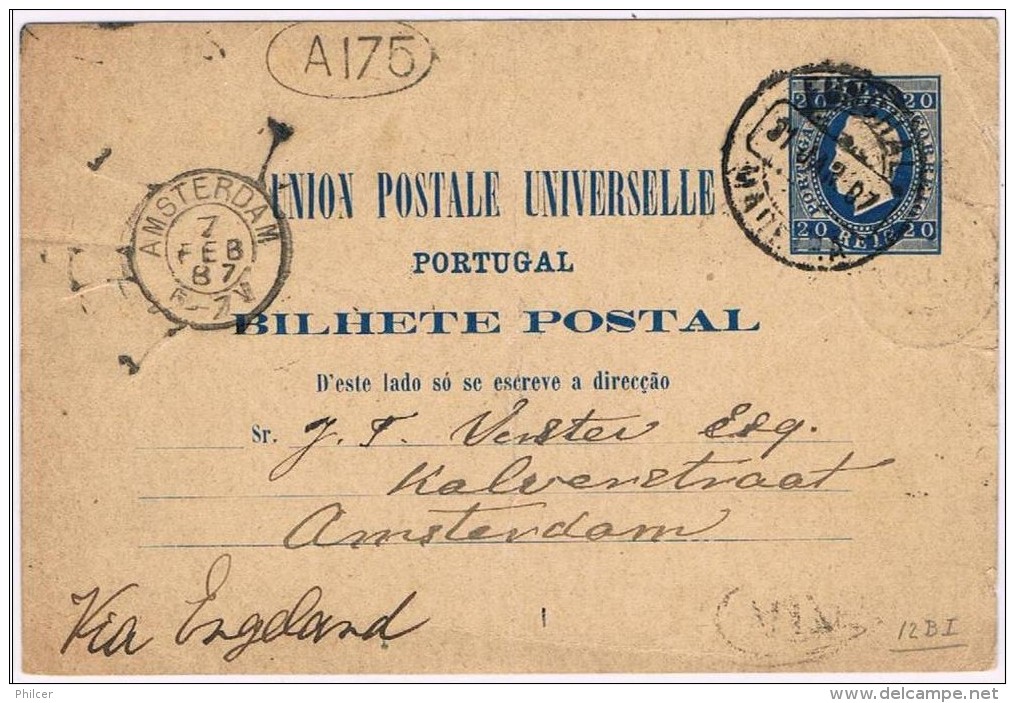 A175
20 20
CORREIO
PORTUGAL
20 REIS 20
FUNCHAL
31 JAN 87
AMSTERDAM
7
FEB
87
UNION POSTALE UNIVERSELLE
PORTUGAL
BILHETE POSTAL
D'este lado só se escreve a direcção
Sr. J. T. Verster Esq.
Kalverstraat
Amsterdam
Via England
1
12BI
Philcer
http://www.delcampe.net